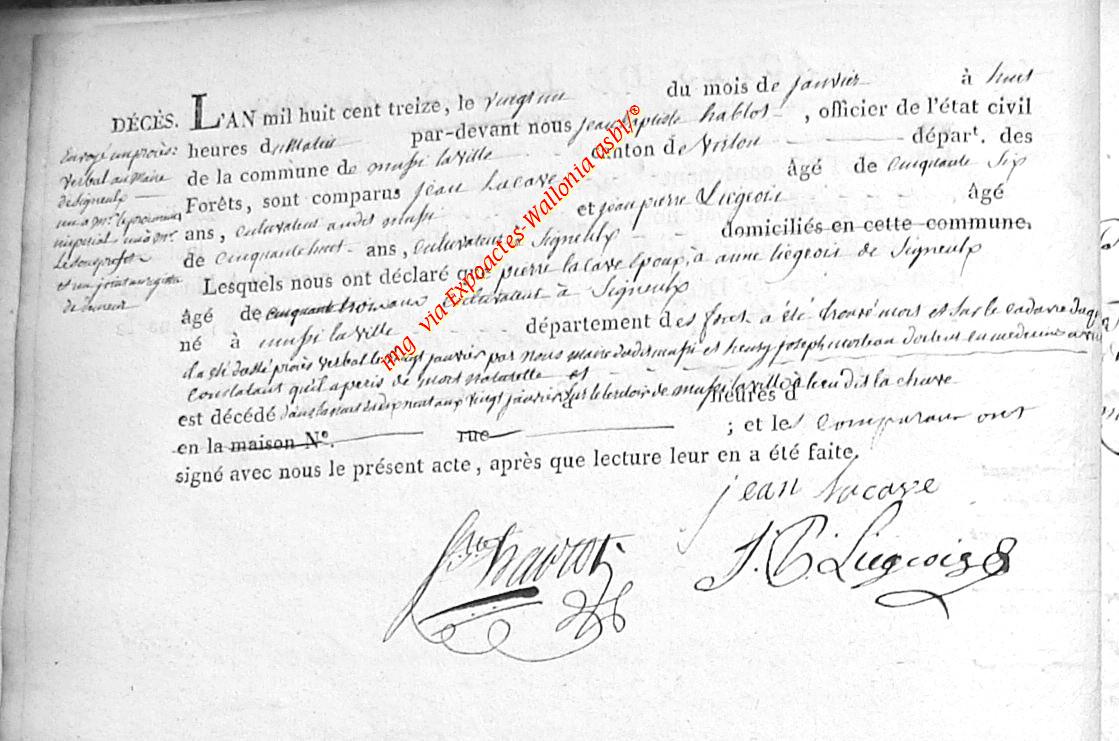 DÉCÈS. L'AN mil huit cent treize, le vingt un du mois de janvier à huit
heures du Matin par-devant nous jean baptiste , officier de l'état civil
de la commune de mussi la ville canton de Virton départ. des
Forêts, sont comparus jean Lacave âgé de cinquante six
ans, cultivateur audit mussi et jean pierre Liégeois âgé
de cinquante huit ans, cultivateur à Signeulx domiciliés en cette commune.
Lesquels nous ont déclaré que pierre lacave époux à anne liegeois de Signeulx
âgé de cinquante trois ans cultivateur à Signeulx
né à mussi la ville département des forets a été trouvé mort et sur le cadavre duquel
il a été dressé procès verbal le vingt janvier par nous maire dudit mussi et henry joseph docteur en medecine à
constatant qu'il a peris de mort naturelle et
est décédé dans la nuit du dix neuf aux vingt janvier sur le territoire de mussi la ville à lieu dit la heures d
en la maison N°. rue ; et les comparans ont
signé avec nous le présent acte, après que lecture leur en a été faite.
Envoyé un procès
verbal au Maire
de Signeulx
un à Mr. le procureur
imperial un à Mr.
Le Sous prefet
jean lacave
J. P. Liegeois
img via Expoactes-Wallonia asbl/®